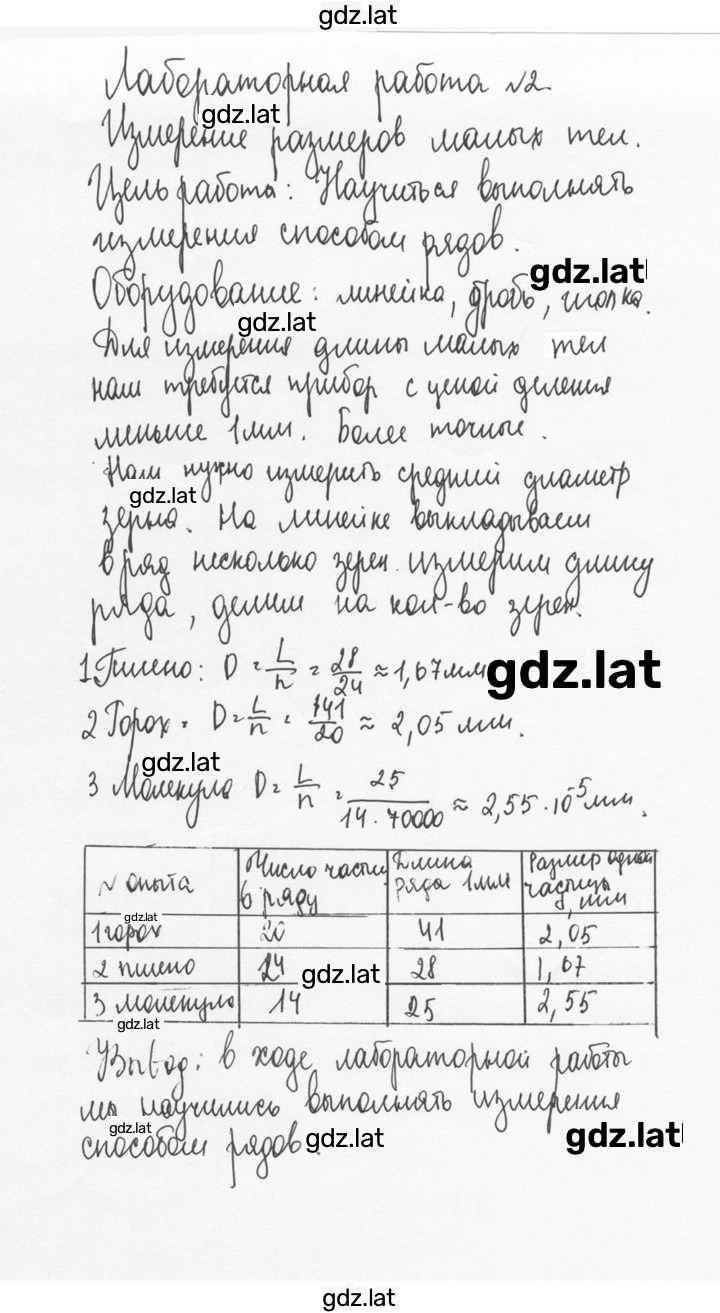 gdz.lat
Лабораторная работа №2
gdz.lat
Измерение размеров малых тел.
Цель работа: Научиться выполнять
измерения способом рядов.
gdz.lat
Оборудование: линейка, дробь, иголка.
gdz.lat
Для измерения длины малых тел
нам требуется прибор с ценой деления
меньше 1мм. Более точные.
Нам нужно измерить средний диаметр
gdz.lat
зерна. На линейке выкладываем
в ряд несколько зерен. измерим длину
ряда, делим на кол-во зерен.
1 Пшено: D = L/n = 28/24 ≈ 1,67мм
gdz.lat
2 Горох. D = L/n = 141/20 ≈ 2,05 мм.
gdz.lat
3 Молекула D = L/n = 25/14·70000 ≈ 2,55·10⁻⁵мм.
№ опыта | Число частиц в ряду | Длина ряда 1мм | Размер одной частицы d, мм
gdz.lat
1 горох | 20 | 41 | 2,05
2 пшено | 24 | 28 | 1,67
gdz.lat
3 молекула | 14 | 25 | 2,55
gdz.lat
Вывод: в ходе лабораторной работы
мы научились выполнять измерения
gdz.lat
способом рядов.
gdz.lat
gdz.lat
gdz.lat